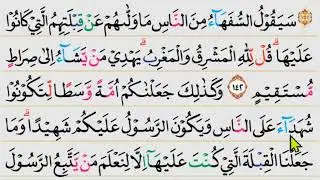 سَيَقُولُ السُّفَهَاءُ مِنَ النَّاسِ مَا وَلَّىٰهُمْ عَنْ قِبْلَتِهِمُ الَّتِيْ كَانُوْا
عَلَيْهَا ۗ قُلْ لِّلّٰهِ الْمَشْرِقُ وَالْمَغْرِبُ ۗ يَهْدِيْ مَنْ يَّشَاۤءُ اِلٰى صِرَاطٍ
مُّسْتَقِيْمٍ ١٤٢ وَكَذٰلِكَ جَعَلْنٰكُمْ اُمَّةً وَّسَطًا لِّتَكُوْنُوْا
شُهَدَاۤءَ عَلَى النَّاسِ وَيَكُوْنَ الرَّسُوْلُ عَلَيْكُمْ شَهِيْدًا ۗ وَمَا
جَعَلْنَا الْقِبْلَةَ الَّتِيْ كُنْتَ عَلَيْهَآ اِلَّا لِنَعْلَمَ مَنْ يَّتَّبِعُ الرَّسُوْلَ